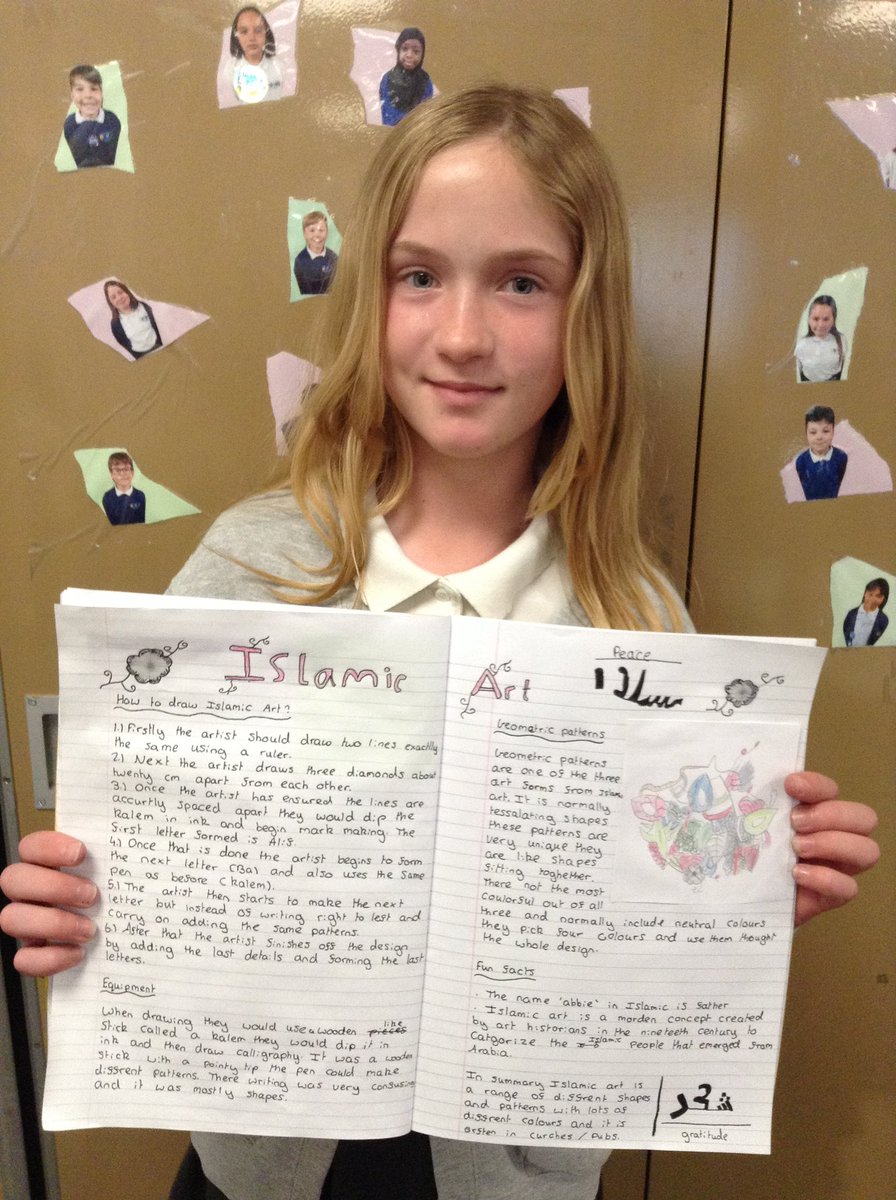 Islamic
How to draw Islamic Art?
1.) Firstly the artist should draw two lines exactlly
the same using a ruler.
2.) Next the artist draws three diamonds about
twenty cm apart from each other.
3.) Once the artist has ensured the lines are
accurtly spaced apart they would dip the
kalem in ink and begin mark making. The
first letter formed is Alif.
4.) Once that is done the artist begins to form
the next letter (Ba) and also uses the same
pen as before (kalem).
5.) The artist then starts to make the next
letter but instead of writing right to left and
carry on adding the same patterns.
6.) After that the artist finishes off the design
by adding the last details and forming the last
letters.
Equipment
When drawing they would use a wooden like
stick called a kalem they would dip it in
ink and then draw calligraphy. It was a wooden
stick with a pointy tip the pen could make
different patterns. There writing was very confusing
and it was mostly shapes.
Art
Peace
سلام
Geometric patterns
Geometric patterns
are one of the three
art forms from Islamic
art. It is normally
tessalating shapes
these patterns are
very unique they
are like shapes
fitting toghether.
There not the most
coulorful out of all
three and normally include neutral colours
they pick four colours and use them thought
the whole design.
Fun facts
. The name 'abbie' in Islamic is father
. Islamic art is a morden concept created
by art historians in the nineteeth century to
Catgorize the Islamic people that emerged from
Arabia.
In summary Islamic art is
a range of diffrent shapes
and patterns with lots of
different colours and it is
orften in curches / Pubs.
شكر
gratitude